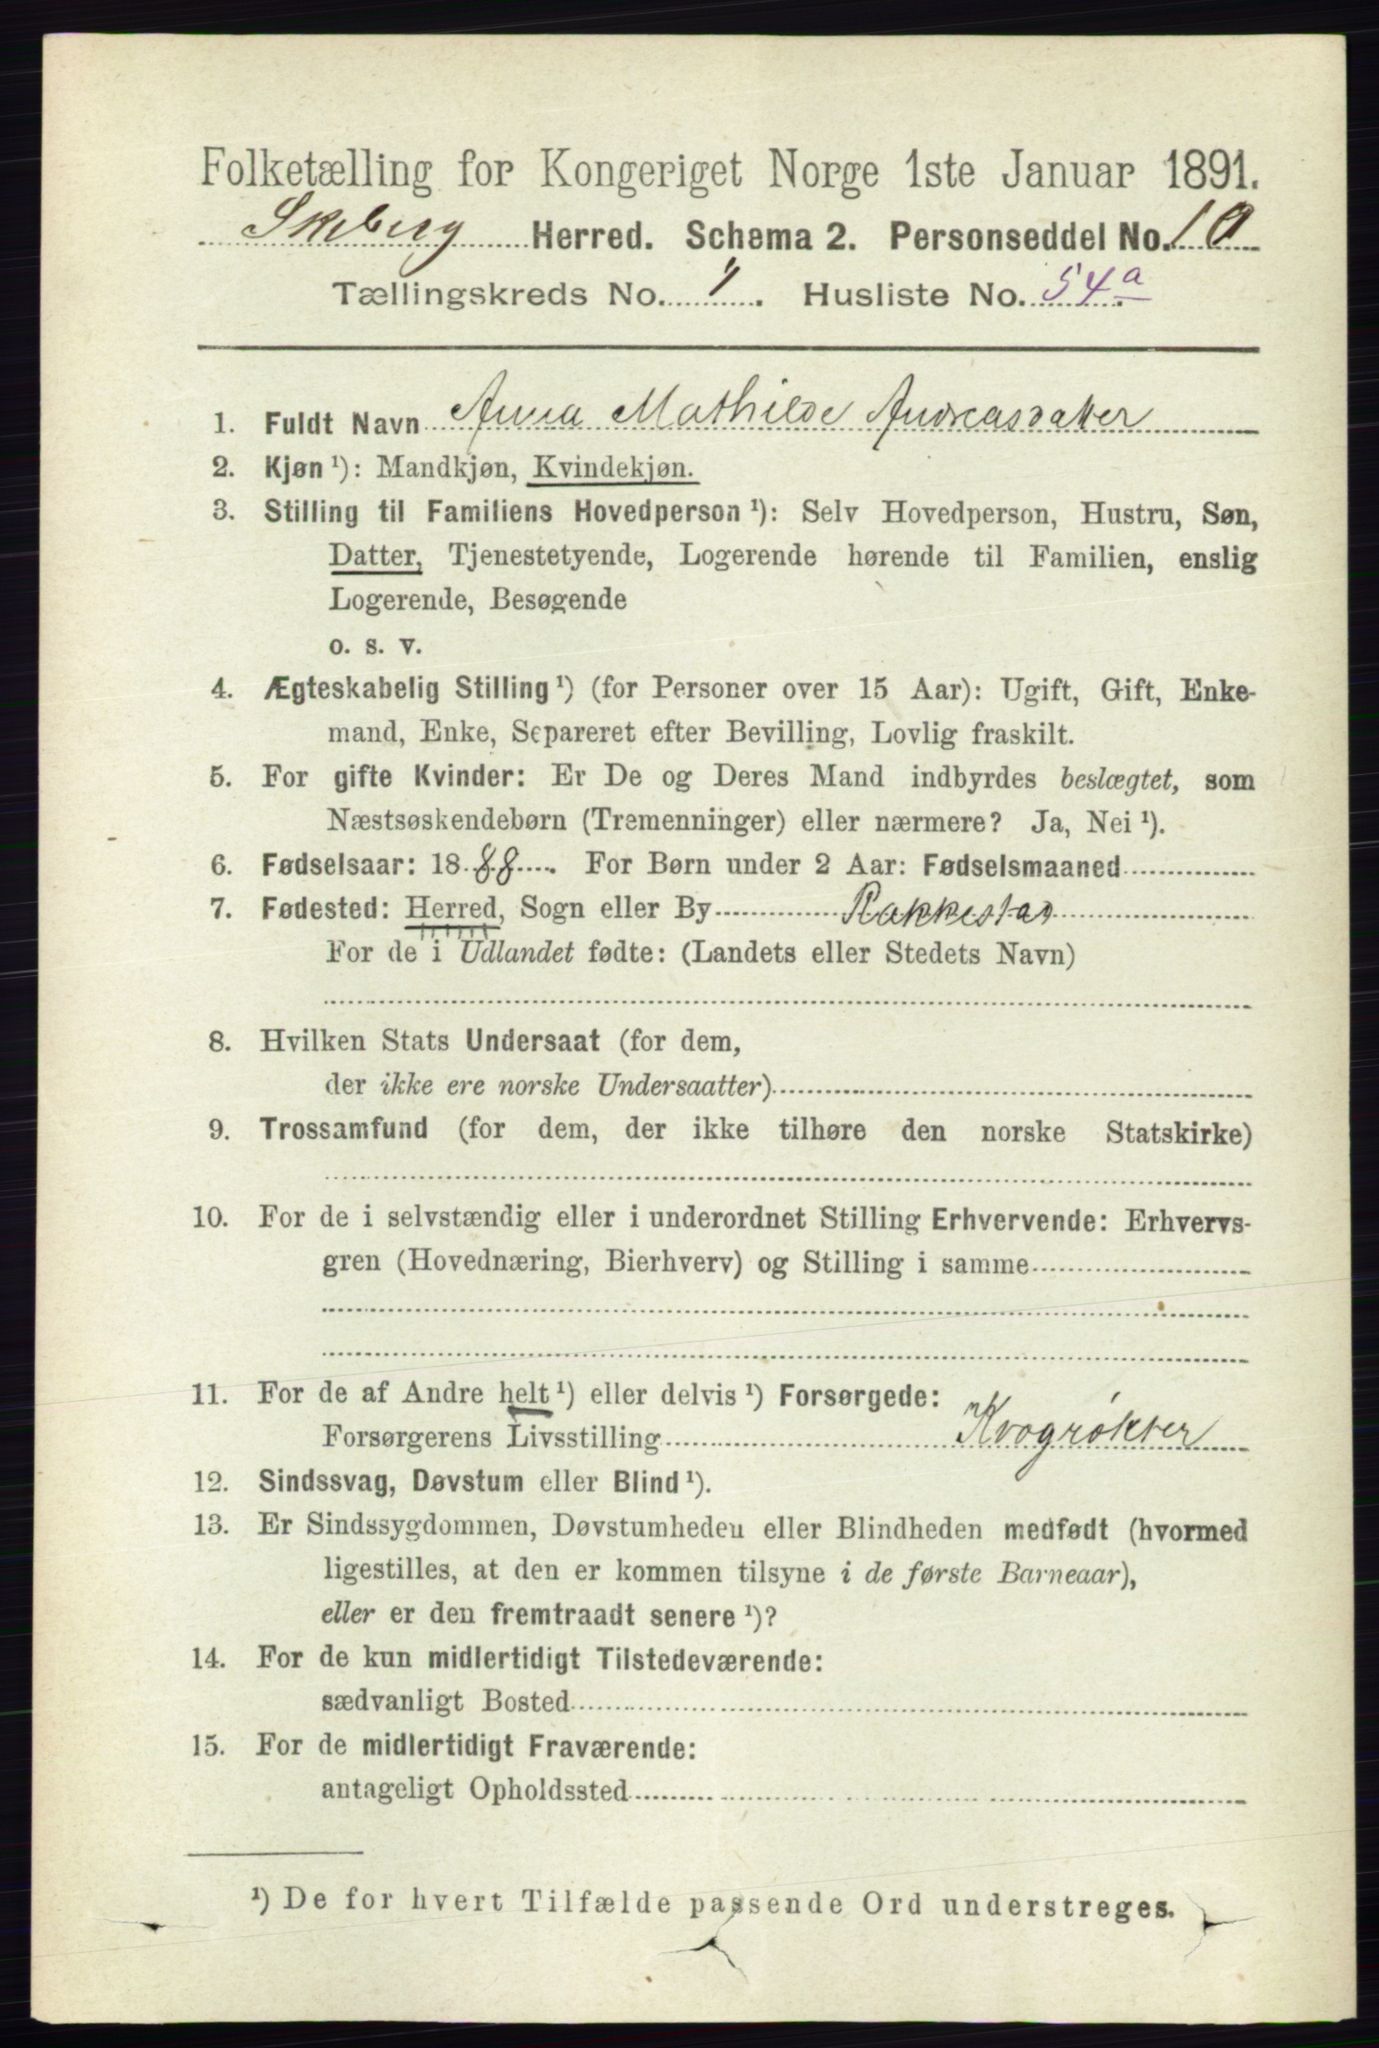 Folketælling for Kongeriget Norge 1ste Januar 1891.
Skeberg Herred. Schema 2. Personseddel No. 10
Tællingskreds No. 1. Husliste No. 54a
1. Fuldt Navn Anna Mathilde Andreasdatter
2. Kjøn ¹): Mandkjøn, Kvindekjøn.
3. Stilling til Familiens Hovedperson ¹): Selv Hovedperson, Hustru, Søn,
Datter, Tjenestetyende, Logerende hørende til Familien, enslig
Logerende, Besøgende
o. s. v.
4. Ægteskabelig Stilling ¹) (for Personer over 15 Aar): Ugift, Gift, Enke-
mand, Enke, Separeret efter Bevilling, Lovlig fraskilt.
5. For gifte Kvinder: Er De og Deres Mand indbyrdes beslægtet, som
Næstsøskendebørn (Tremenninger) eller nærmere? Ja, Nei ¹).
6. Fødselsaar: 1888. For Børn under 2 Aar: Fødselsmaaned
7. Fødested: Herred, Sogn eller By Rakkestad
For de i Udlandet fødte: (Landets eller Stedets Navn)
8. Hvilken Stats Undersaat (for dem,
der ikke ere norske Undersaatter)
9. Trossamfund (for dem, der ikke tilhøre den norske Statskirke)
10. For de i selvstændig eller i underordnet Stilling Erhvervende: Erhvervs-
gren (Hovednæring, Bierhverv) og Stilling i samme
11. For de af Andre helt ¹) eller delvis ¹) Forsørgede:
Forsørgerens Livsstilling Kvægrökter
12. Sindssvag, Døvstum eller Blind ¹).
13. Er Sindssygdommen, Døvstumheden eller Blindheden medfødt (hvormed
ligestilles, at den er kommen tilsyne i de første Barneaar),
eller er den fremtraadt senere ¹)?
14. For de kun midlertidigt Tilstedeværende:
sædvanligt Bosted
15. For de midlertidigt Fraværende:
antageligt Opholdssted
¹) De for hvert Tilfælde passende Ord understreges.